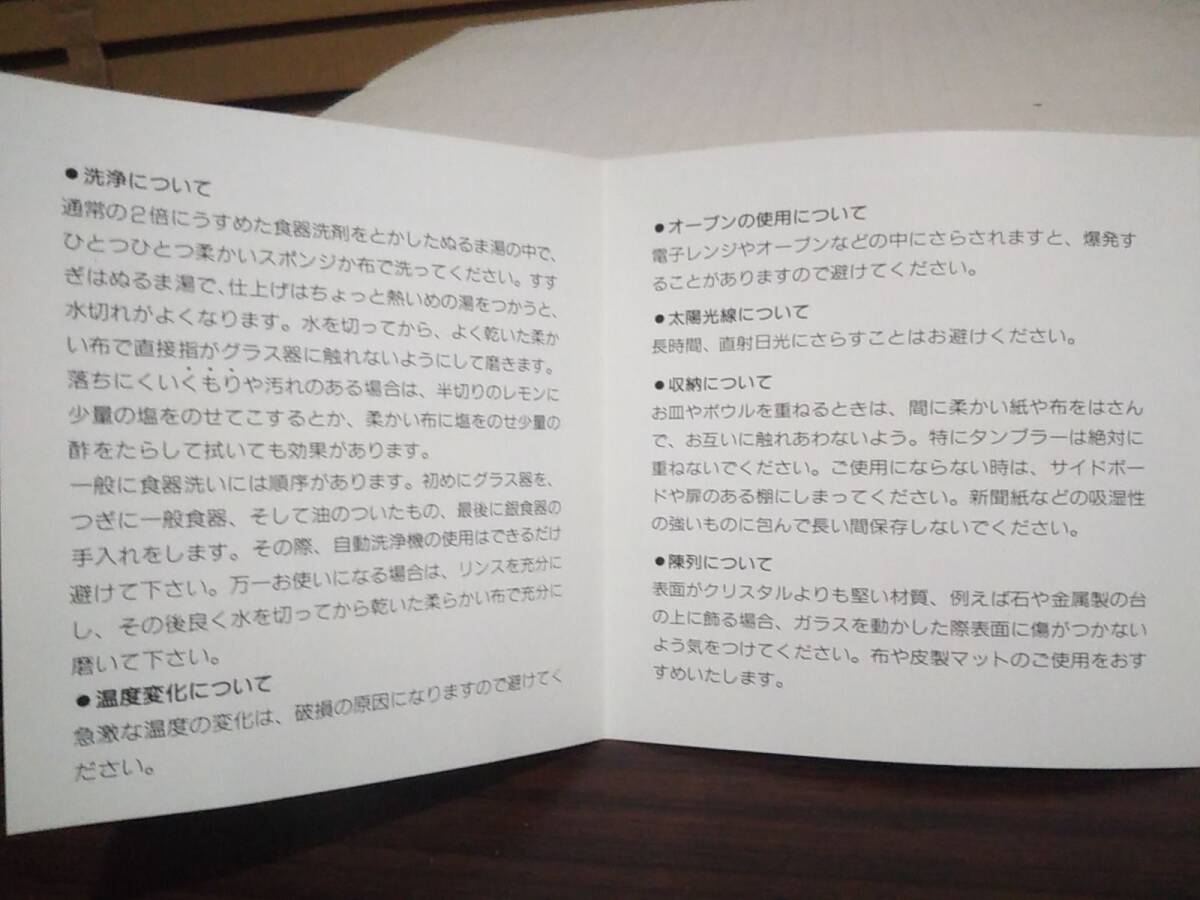 ●洗浄について
通常の2倍にうすめた食器洗剤をとかしたぬるま湯の中で、
ひとつひとつ柔かいスポンジか布で洗ってください。すす
ぎはぬるま湯で、仕上げはちょっと熱いめの湯をつかうと、
水切れがよくなります。水を切ってから、よく乾いた柔か
い布で直接指がグラス器に触れないようにして磨きます。
落ちにくいくもりや汚れのある場合は、半切りのレモンに
少量の塩をのせてこするとか、柔かい布に塩をのせ少量の
酢をたらして拭いても効果があります。
一般に食器洗いには順序があります。初めにグラス器を、
つぎに一般食器、そして油のついたもの、最後に銀食器の
手入れをします。その際、自動洗浄機の使用はできるだけ
避けて下さい。万一お使いになる場合は、リンスを充分に
し、その後良く水を切ってから乾いた柔らかい布で充分に
磨いて下さい。
●温度変化について
急激な温度の変化は、破損の原因になりますので避けてく
ださい。
●オーブンの使用について
電子レンジやオーブンなどの中にさらされますと、爆発す
ることがありますので避けてください。
●太陽光線について
長時間、直射日光にさらすことはお避けください。
●収納について
お皿やボウルを重ねるときは、間に柔かい紙や布をはさん
で、お互いに触れあわないよう。特にタンブラーは絶対に
重ねないでください。ご使用にならない時は、サイドボー
ドや扉のある棚にしまってください。新聞紙などの吸湿性
の強いものに包んで長い間保存しないでください。
●陳列について
表面がクリスタルよりも堅い材質、例えば石や金属製の台
の上に飾る場合、ガラスを動かした際表面に傷がつかない
よう気をつけてください。布や皮製マットのご使用をおす
すめいたします。